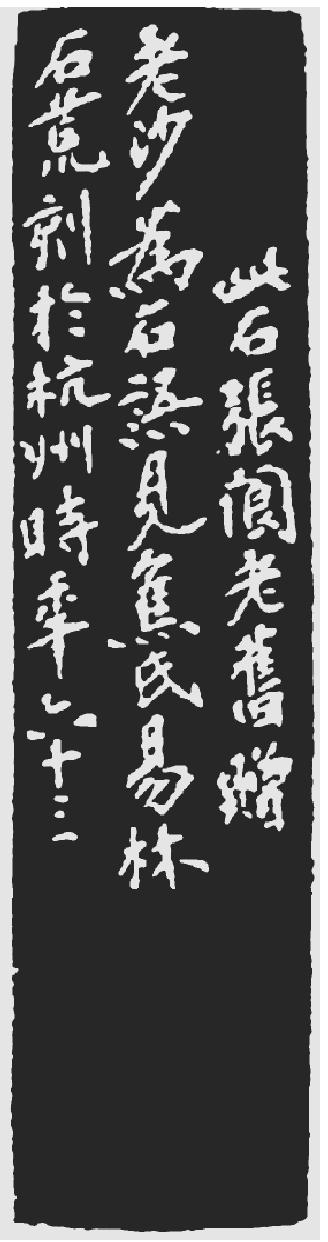 此石張閬老舊贈
老沙為石語見焦氏易林
石荒刻於杭州時年六十三